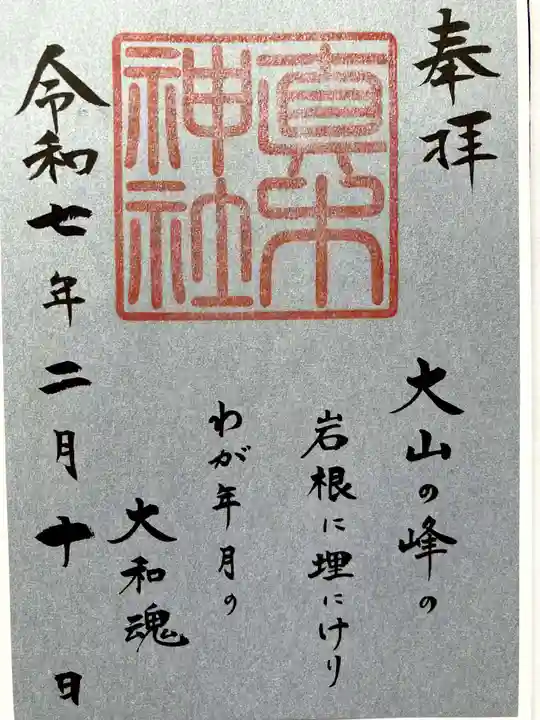 奉拝
眞木神社
大山の峰の
岩根に埋にけり
わが年月の
大和魂
令和七年二月十日